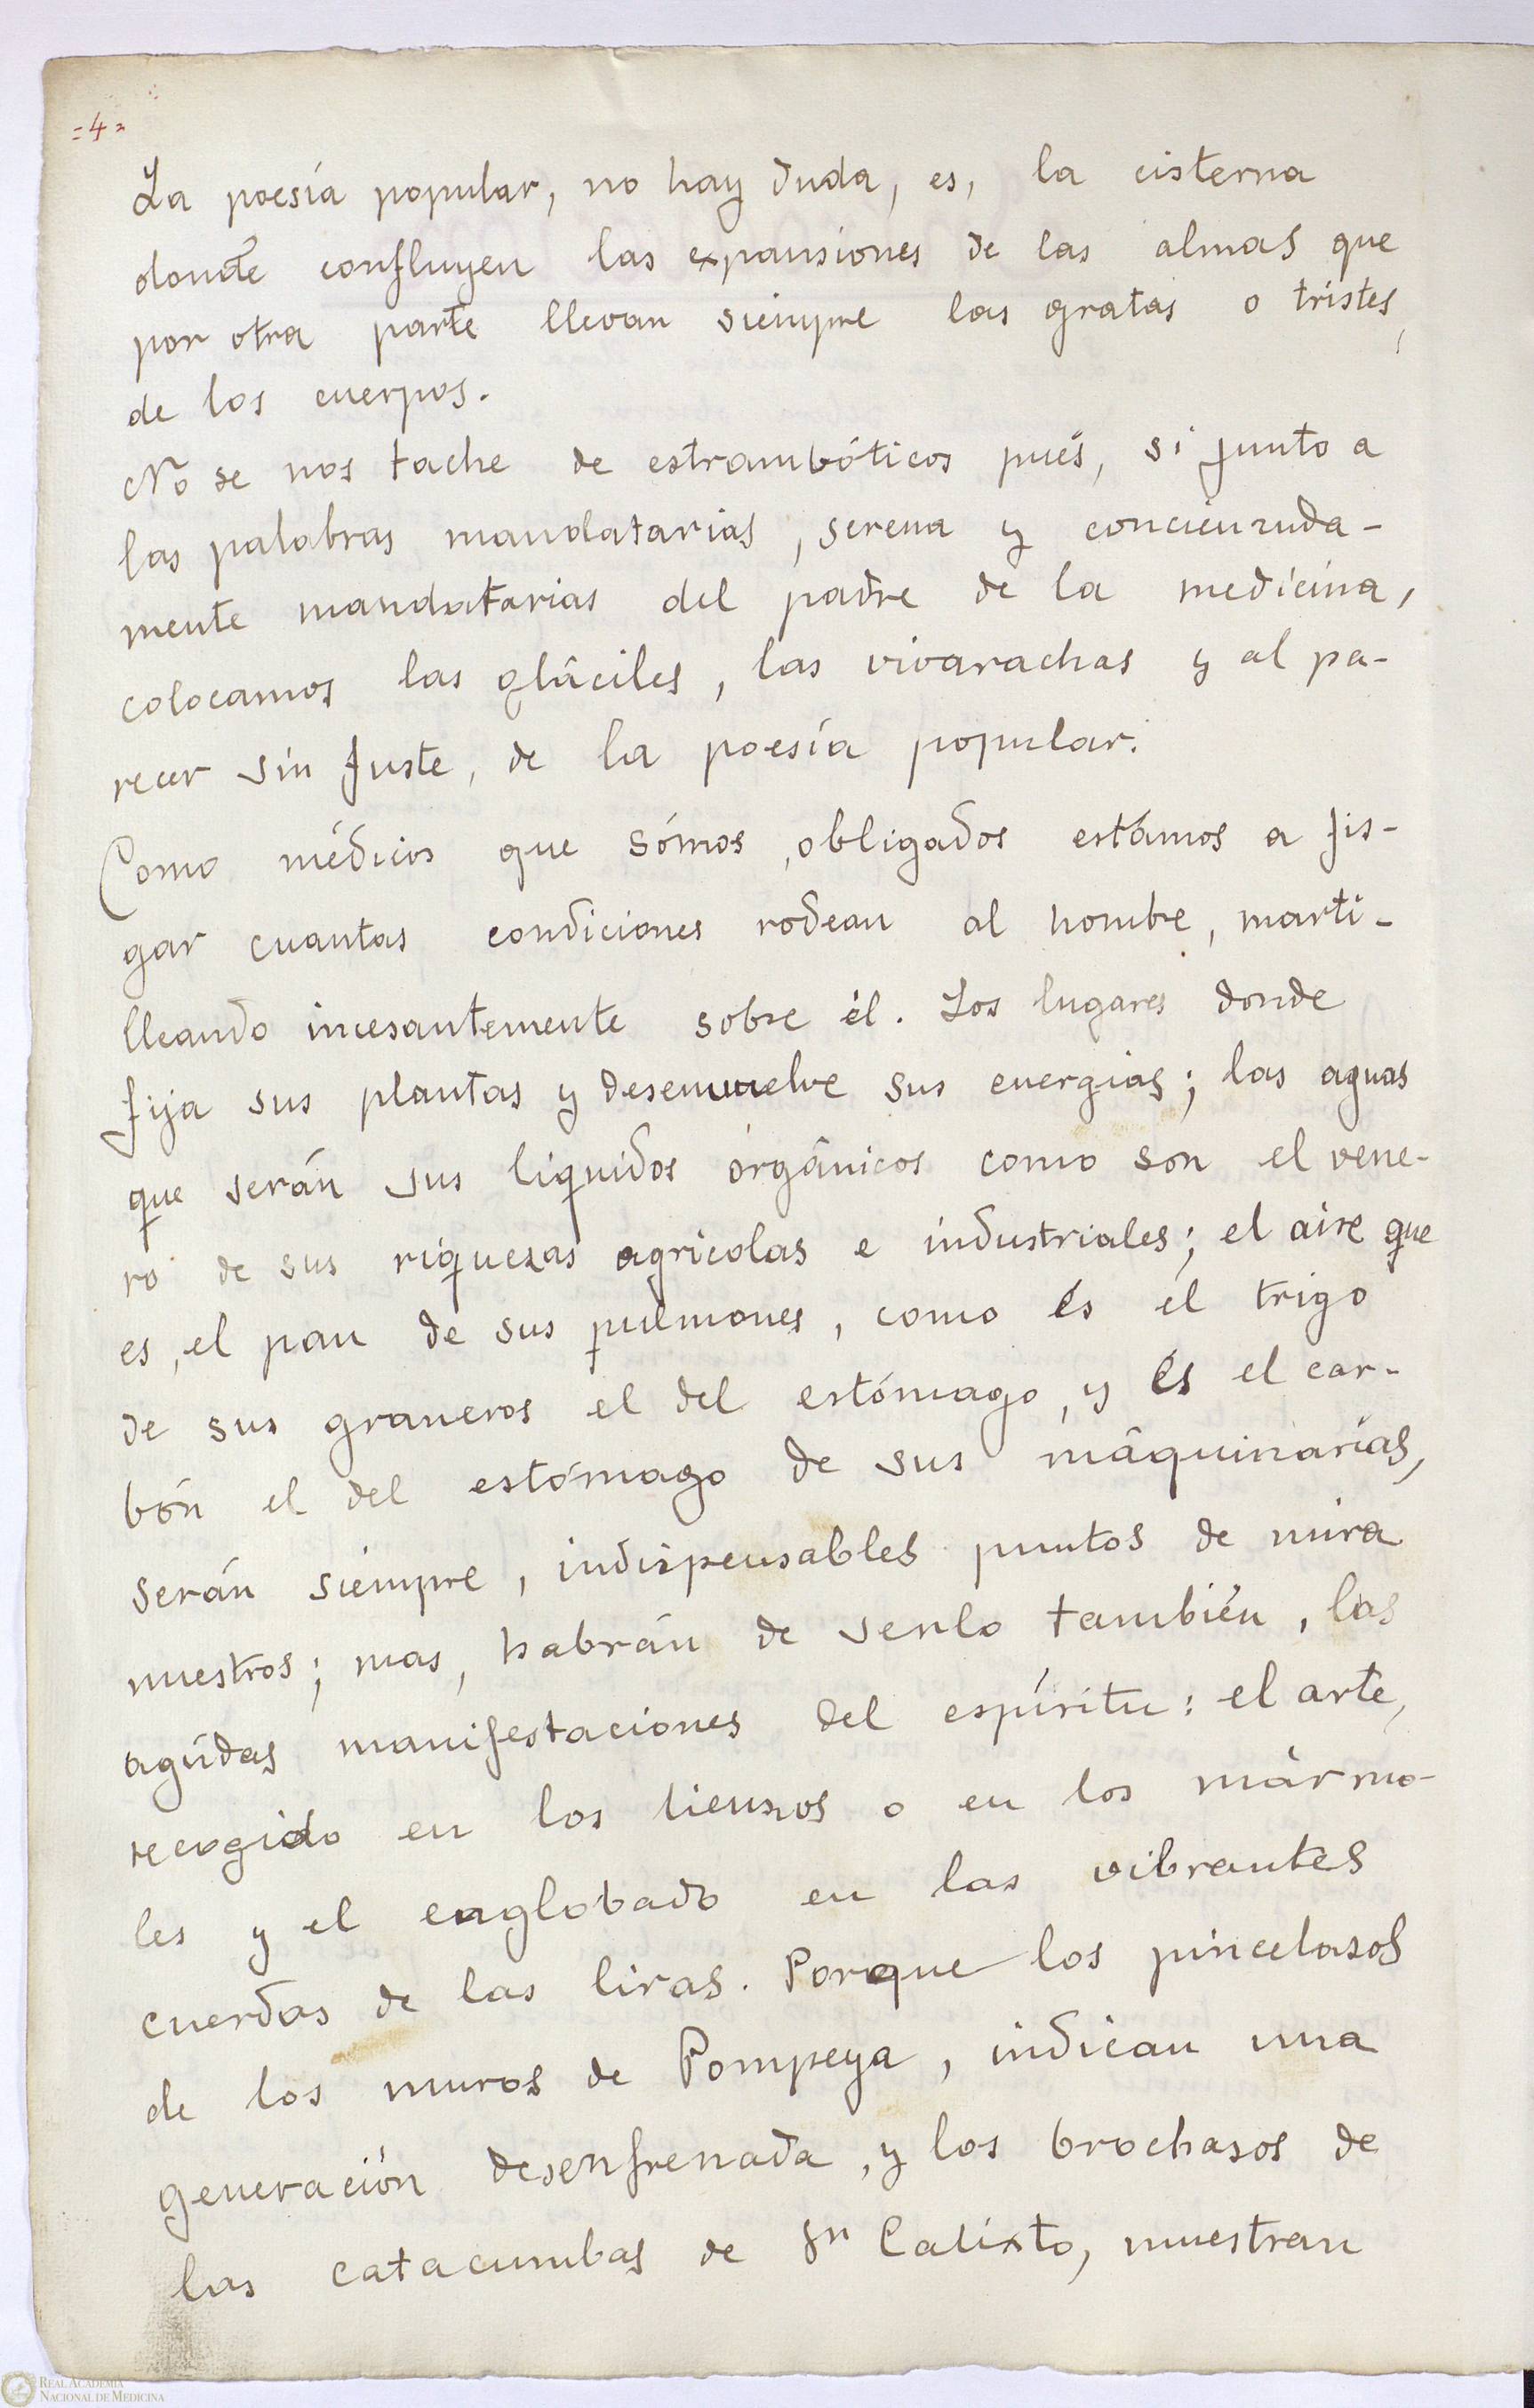 =4=
La poesía popular, no hay duda, es, la cisterna
donde confluyen las expansiones de las almas que
por otra parte llevan siempre las gratas o tristes,
de los cuerpos.
No se nos tache de estrambóticos pués, si junto a
las palabras mandatarias, serena y concienzuda-
mente mandatarias del padre de la medicina,
colocamos las gláciles, las vivarachas y al pa-
recer sin fuste, de la poesía popular.
Como médicos que sómos, obligados estámos a fis-
gar cuantas condiciones rodean al hombre, marti-
lleando incesantemente sobre él. Los lugares donde
fija sus plantas y desenvuelve sus energias; las aguas
que serán sus liquidos orgánicos como son el vene-
ro de sus riquezas agricolas e industriales; el aire que
es, el pan de sus pulmones, como és el trigo
de sus graneros el del estómago, y és el car-
bón el del estómago de sus máquinarias,
serán siempre, indispensables puntos de mira
nuestros; mas, habrán de serlo también, las
agúdas manifestaciones del espíritu: el arte,
recogido en los lienzos o en los mármo-
les y el englobado en las vibrantes
cuerdas de las liras. Porque los pincelazos
de los muros de Pompeya, indican una
generación desenfrenada, y los brochazos de
las catacumbas de Sn Calixto, muestran
REAL ACADEMIA
NACIONAL DE MEDICINA